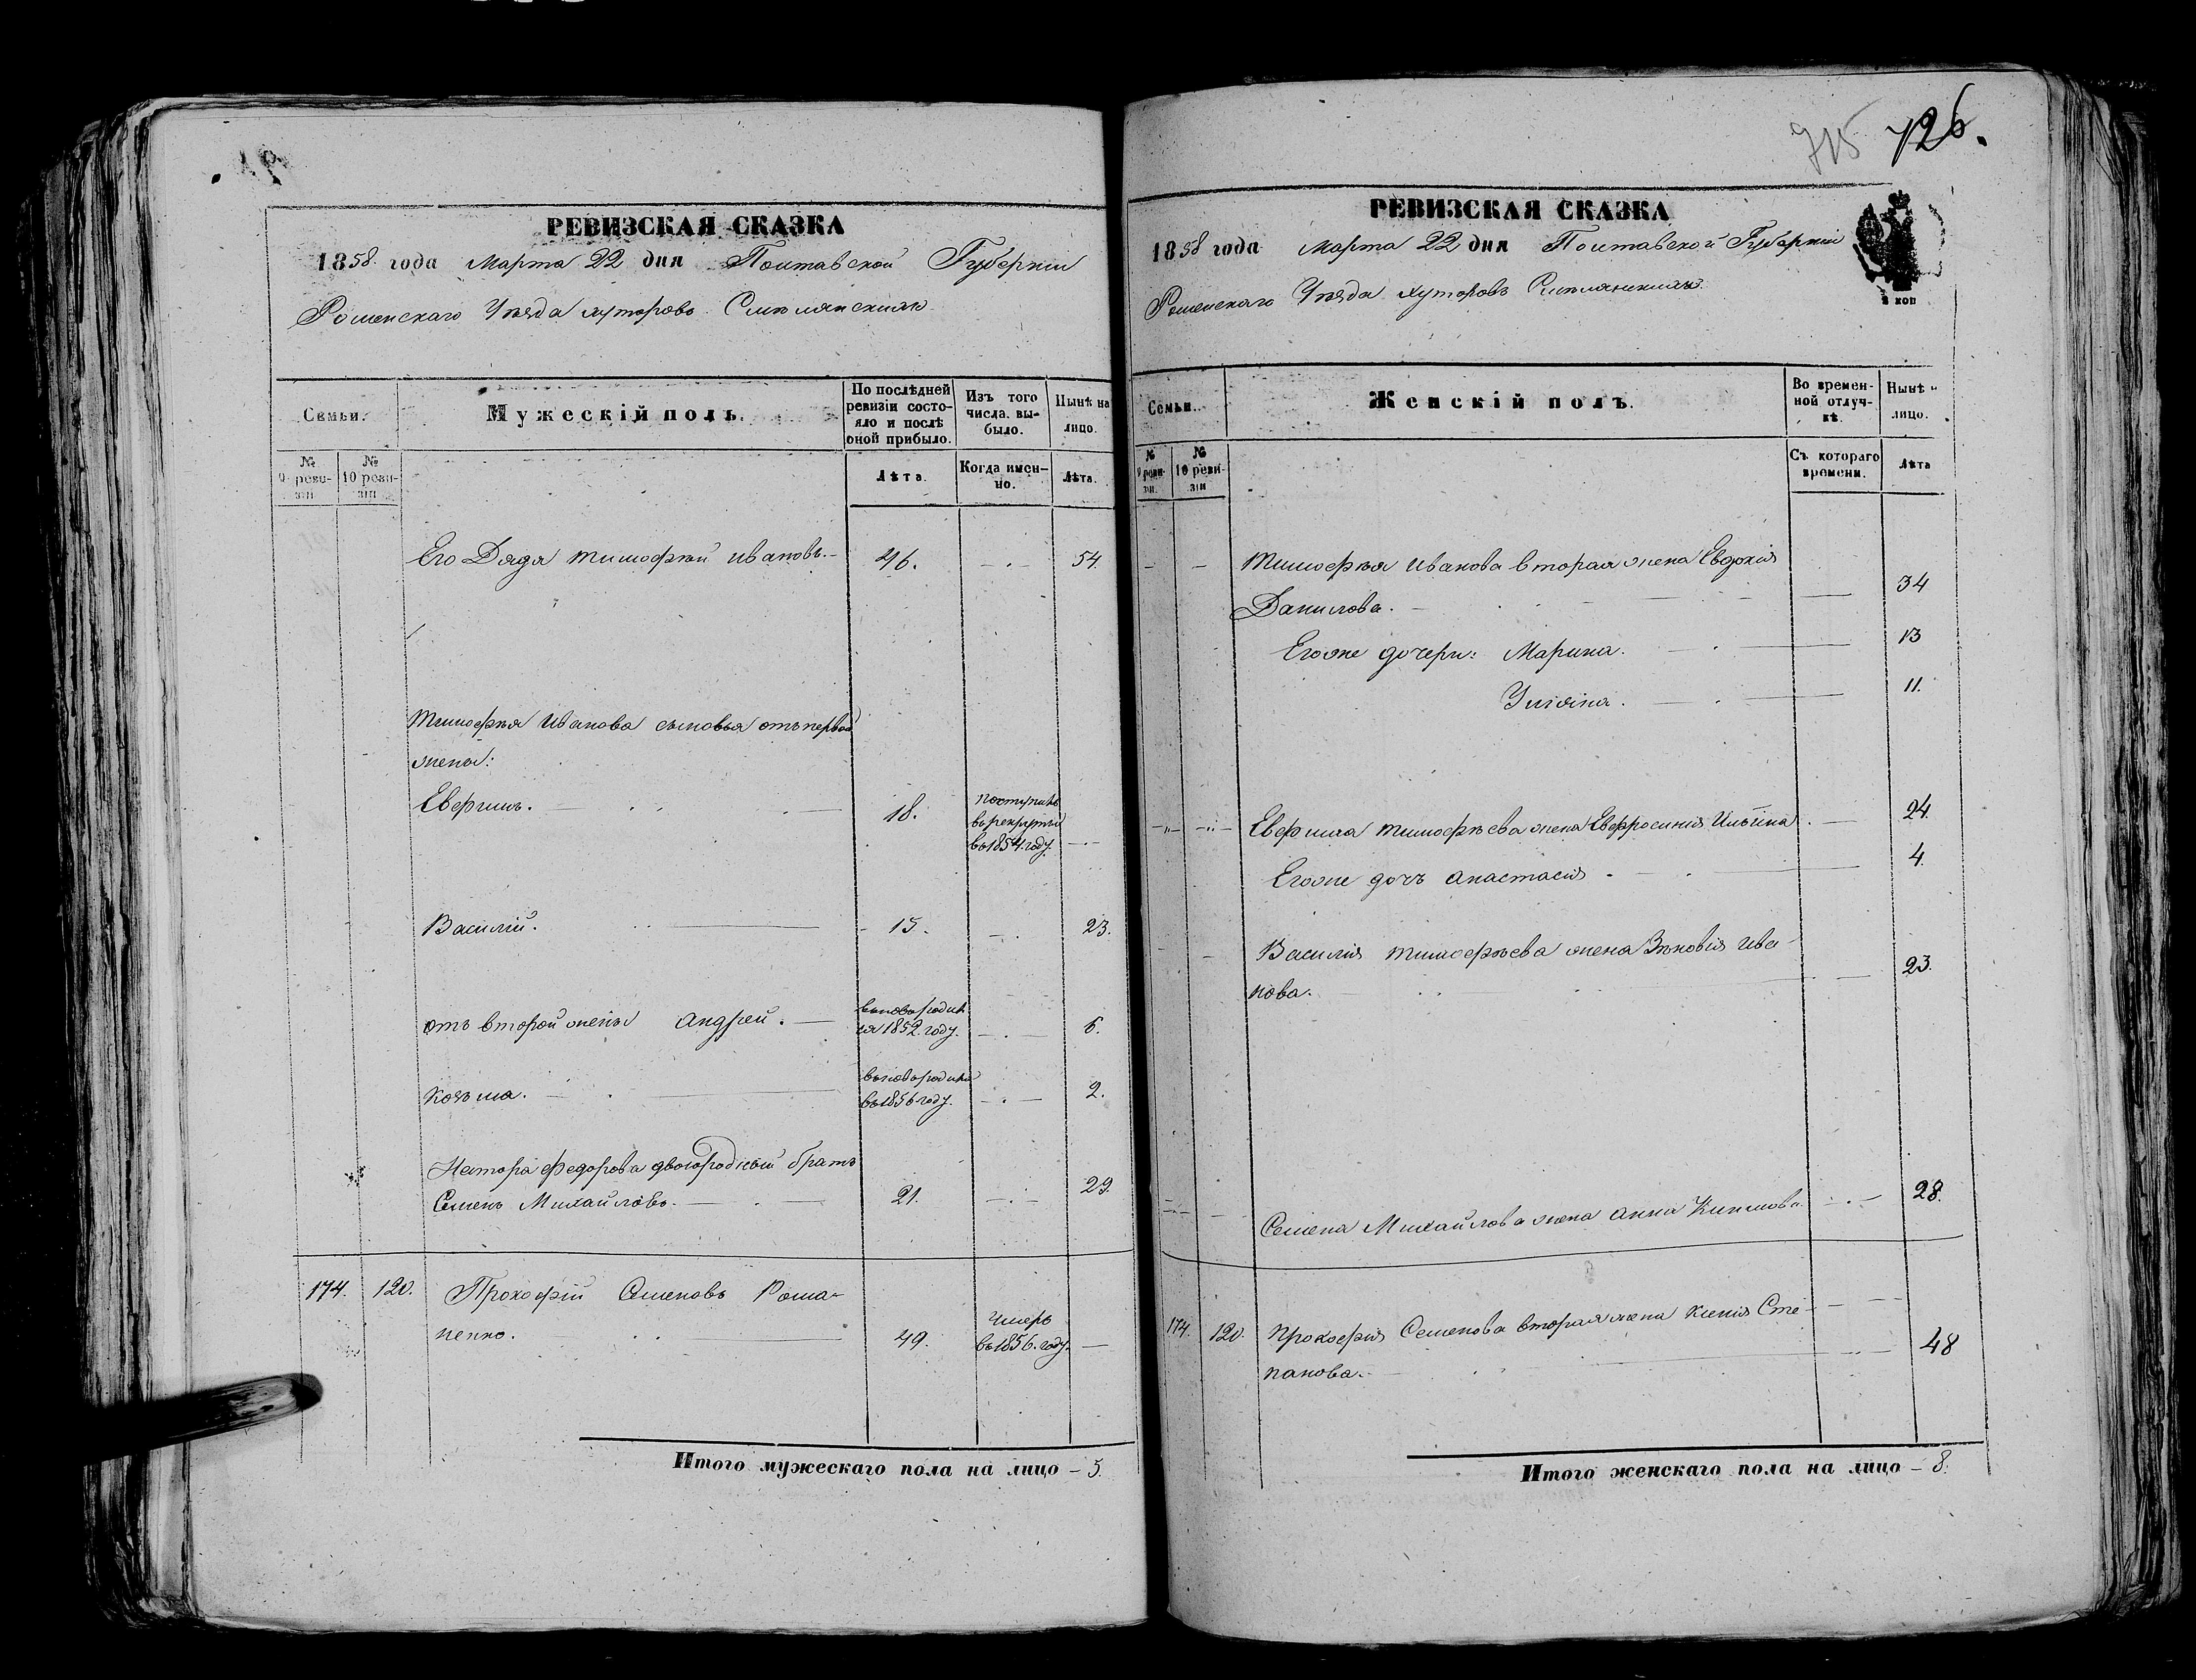 РЕВИЗСКАЯ СКАЗКА
1858 года Марта 22 дня Полтавской Губернии
Роменскаго Уѣзда хуторовъ
Семьи.
Мужескій полъ.
По послѣдней ревизіи состояло и послѣ оной прибыло.
Изъ того числа выбыло.
Нынѣ на лицо.
№ 9 ревизіи
№ 10 ревизіи
Лѣта.
Когда именно.
Лѣта.
Его Дядя Тимофѣй Ивановъ. 46. 54.
Тимофѣя Иванова сыновья отъ первой
жены:
Евфимъ. 18. поступилъ
въ рекруты
въ 1854. году.
Василій. 15. 23.
отъ второй жены Андрей. вновь родил
ся 1852. году. 6.
Козьма. вновь родился
въ 1856 году. 2.
Нестора Федорова двоюродный братъ
Семенъ Михайловъ. 21. 29.
174. 120. Прокофій Семеновъ Рома-
ненко. 49. умеръ
въ 1856. году.
Итого мужескаго пола на лицо - 5.
715 726.
РЕВИЗСКАЯ СКАЗКА
1858 года Марта 22 дня Полтавской Губерніи
Роменскаго Уѣзда хуторовъ
коп
Семьи.
Женскій полъ.
Во временной отлучкѣ.
Нынѣ на лицо.
№ 9 ревизіи.
№ 10 ревизіи
Съ котораго времени.
Лѣта
Тимофѣя Иванова вторая жена Евдокія
Данилова. 34
Егоже дочери: Марина. 13
Уліяна. 11.
Евфима Тимофѣева жена Евфросинія Ильина. 24.
Егоже дочь Анастасія. 4.
Василія Тимофѣева жена Зѣновія Ива-
нова. 23.
Семена Михайлова жена Анна 28.
174. 120. Прокофія Семенова вторая жена Ксенія Сте-
панова. 48
Итого женскаго пола на лицо - 8.